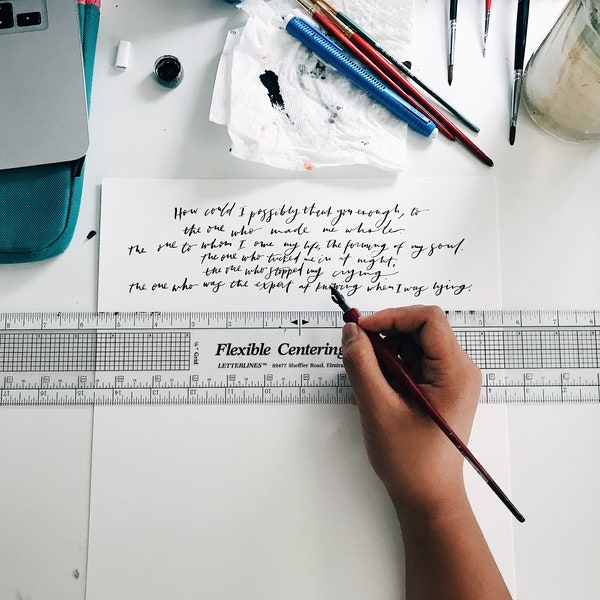 How could I possibly thank you enough, to
the one who made me whole.
The one to whom I owe my life, the forming of my soul.
The one who tucked me in at night,
the one who stopped my crying
The one who was the expert at knowing when I was lying.
Flexible Centering
LETTERLINES™ 89477 Sheffler Road, Elmira